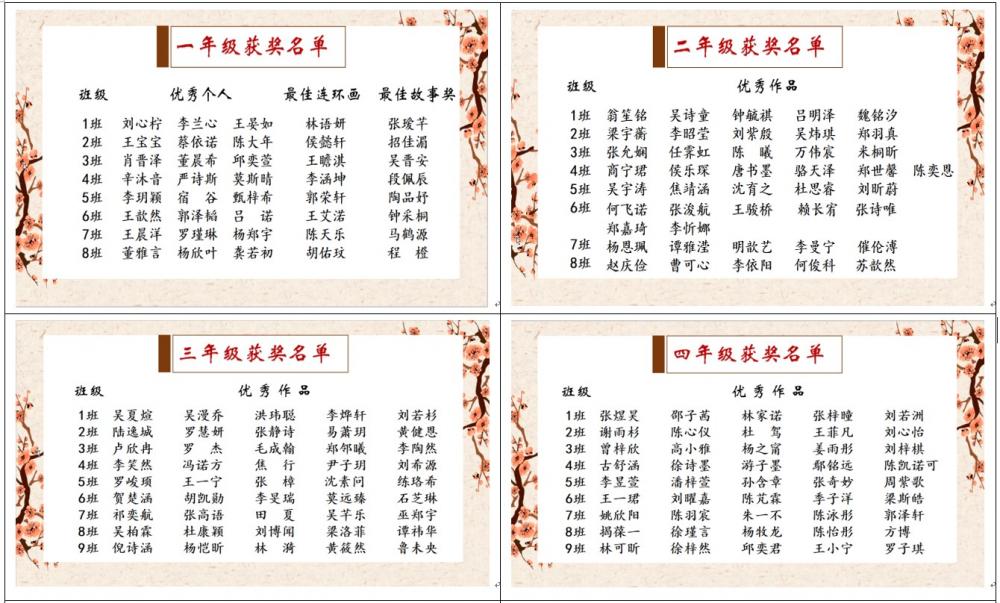 一年级获奖名单
班级 优秀个人 最佳连环画 最佳故事奖
1班 刘心柠 李兰心 王晏如 林语妍 张瑷芊
2班 王宝宝 蔡依诺 陈大年 侯懿轩 招佳湄
3班 肖晋泽 董晨希 邱奕萱 王瞻淇 吴晋安
4班 辛沐音 严诗斯 莫斯晴 李涵坤 段佩辰
5班 李玥颖 宿谷 甄梓希 郭荣轩 陶品妤
6班 王歆然 郭泽韬 吕诺 王艾诺 钟采桐
7班 王晨洋 罗瑾琳 杨郑宇 陈天乐 马鹤源
8班 董雅言 杨欣叶 龚若初 胡佑玟 程橙
二年级获奖名单
班级 优秀作品
1班 翁笙铭 吴诗童 钟毓祺 吕明泽 魏铭汐
2班 梁宇蘅 李昭莹 刘紫殷 吴炜琪 郑羽真
3班 张允娴 任霁虹 陈曦 万伟宸 米桐昕
4班 商宁珺 侯乐琛 唐书墨 骆天泽 郑世馨 陈奕恩
5班 吴宇涛 焦靖涵 沈育之 杜思睿 刘昕蔚
6班 何飞诺 张浚航 王骏桥 赖长宥 张诗唯
郑嘉琦 李忻娜
7班 杨恩珮 谭雅滢 明歆艺 李曼宁 催伦溥
8班 赵庆俭 曹可心 李依阳 何俊科 苏歆然
三年级获奖名单
班级 优秀作品
1班 吴夏煊 吴漫乔 洪玮聪 李烨轩 刘若杉
2班 陆逸城 罗慧妍 张静诗 易萧玥 黄健恩
3班 卢欣冉 罗杰 毛成翰 郑邻曦 李陶然
4班 李笑然 冯诺方 焦行 尹子玥 刘希源
5班 罗峻顼 王一宁 张樟 沈素问 练珞希
6班 贺楚涵 胡凯勋 李昊瑞 莫远臻 石芝琳
7班 祁奕航 张高语 田夏 吴芊乐 巫郑宇
8班 吴柏霖 杜康颖 刘博闻 梁洛菲 谭祎华
9班 倪诗涵 杨恺昕 林漪 黄筱然 鲁未央
四年级获奖名单
班级 优秀作品
1班 张煜昊 邵子茜 林家诺 张梓瞳 刘若洲
2班 谢雨杉 陈心仪 杜驾 王菲凡 刘心怡
3班 曾梓欣 高小雅 杨之甯 姜雨彤 刘梓棋
4班 古舒涵 徐诗墨 游子墨 鄢铭远 陈凯诺可
5班 李昱萱 潘梓萱 孙含章 张奇妙 周紫歌
6班 王一珺 刘曜嘉 陈芃霖 李子洋 梁斯皓
7班 姚欣阳 陈羽宸 朱一不 陈泳彤 郭泽轩
8班 揭葆一 徐瑾言 杨牧龙 陈怡彤 方博
9班 林可昕 徐梓然 邱奕君 王小宁 罗子琪